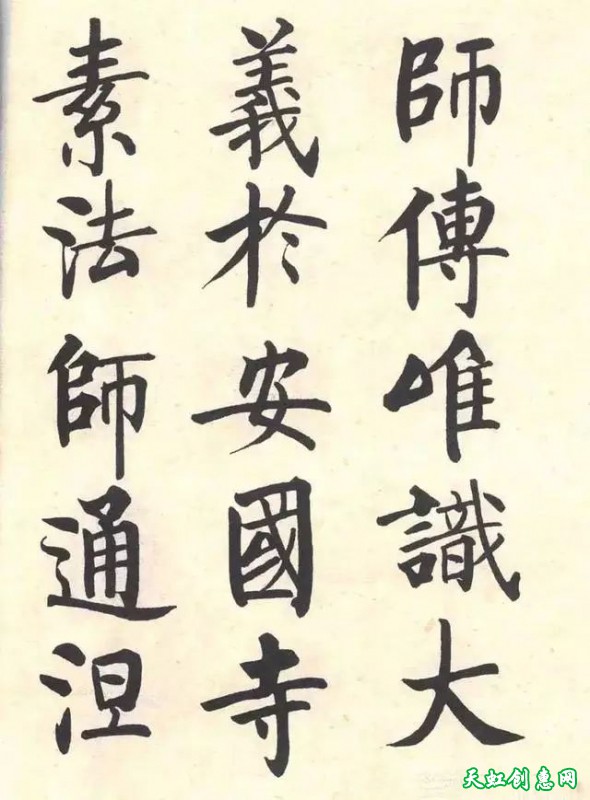 師傳唯識大
義於安國寺
素法師通涅
天虹创惠网